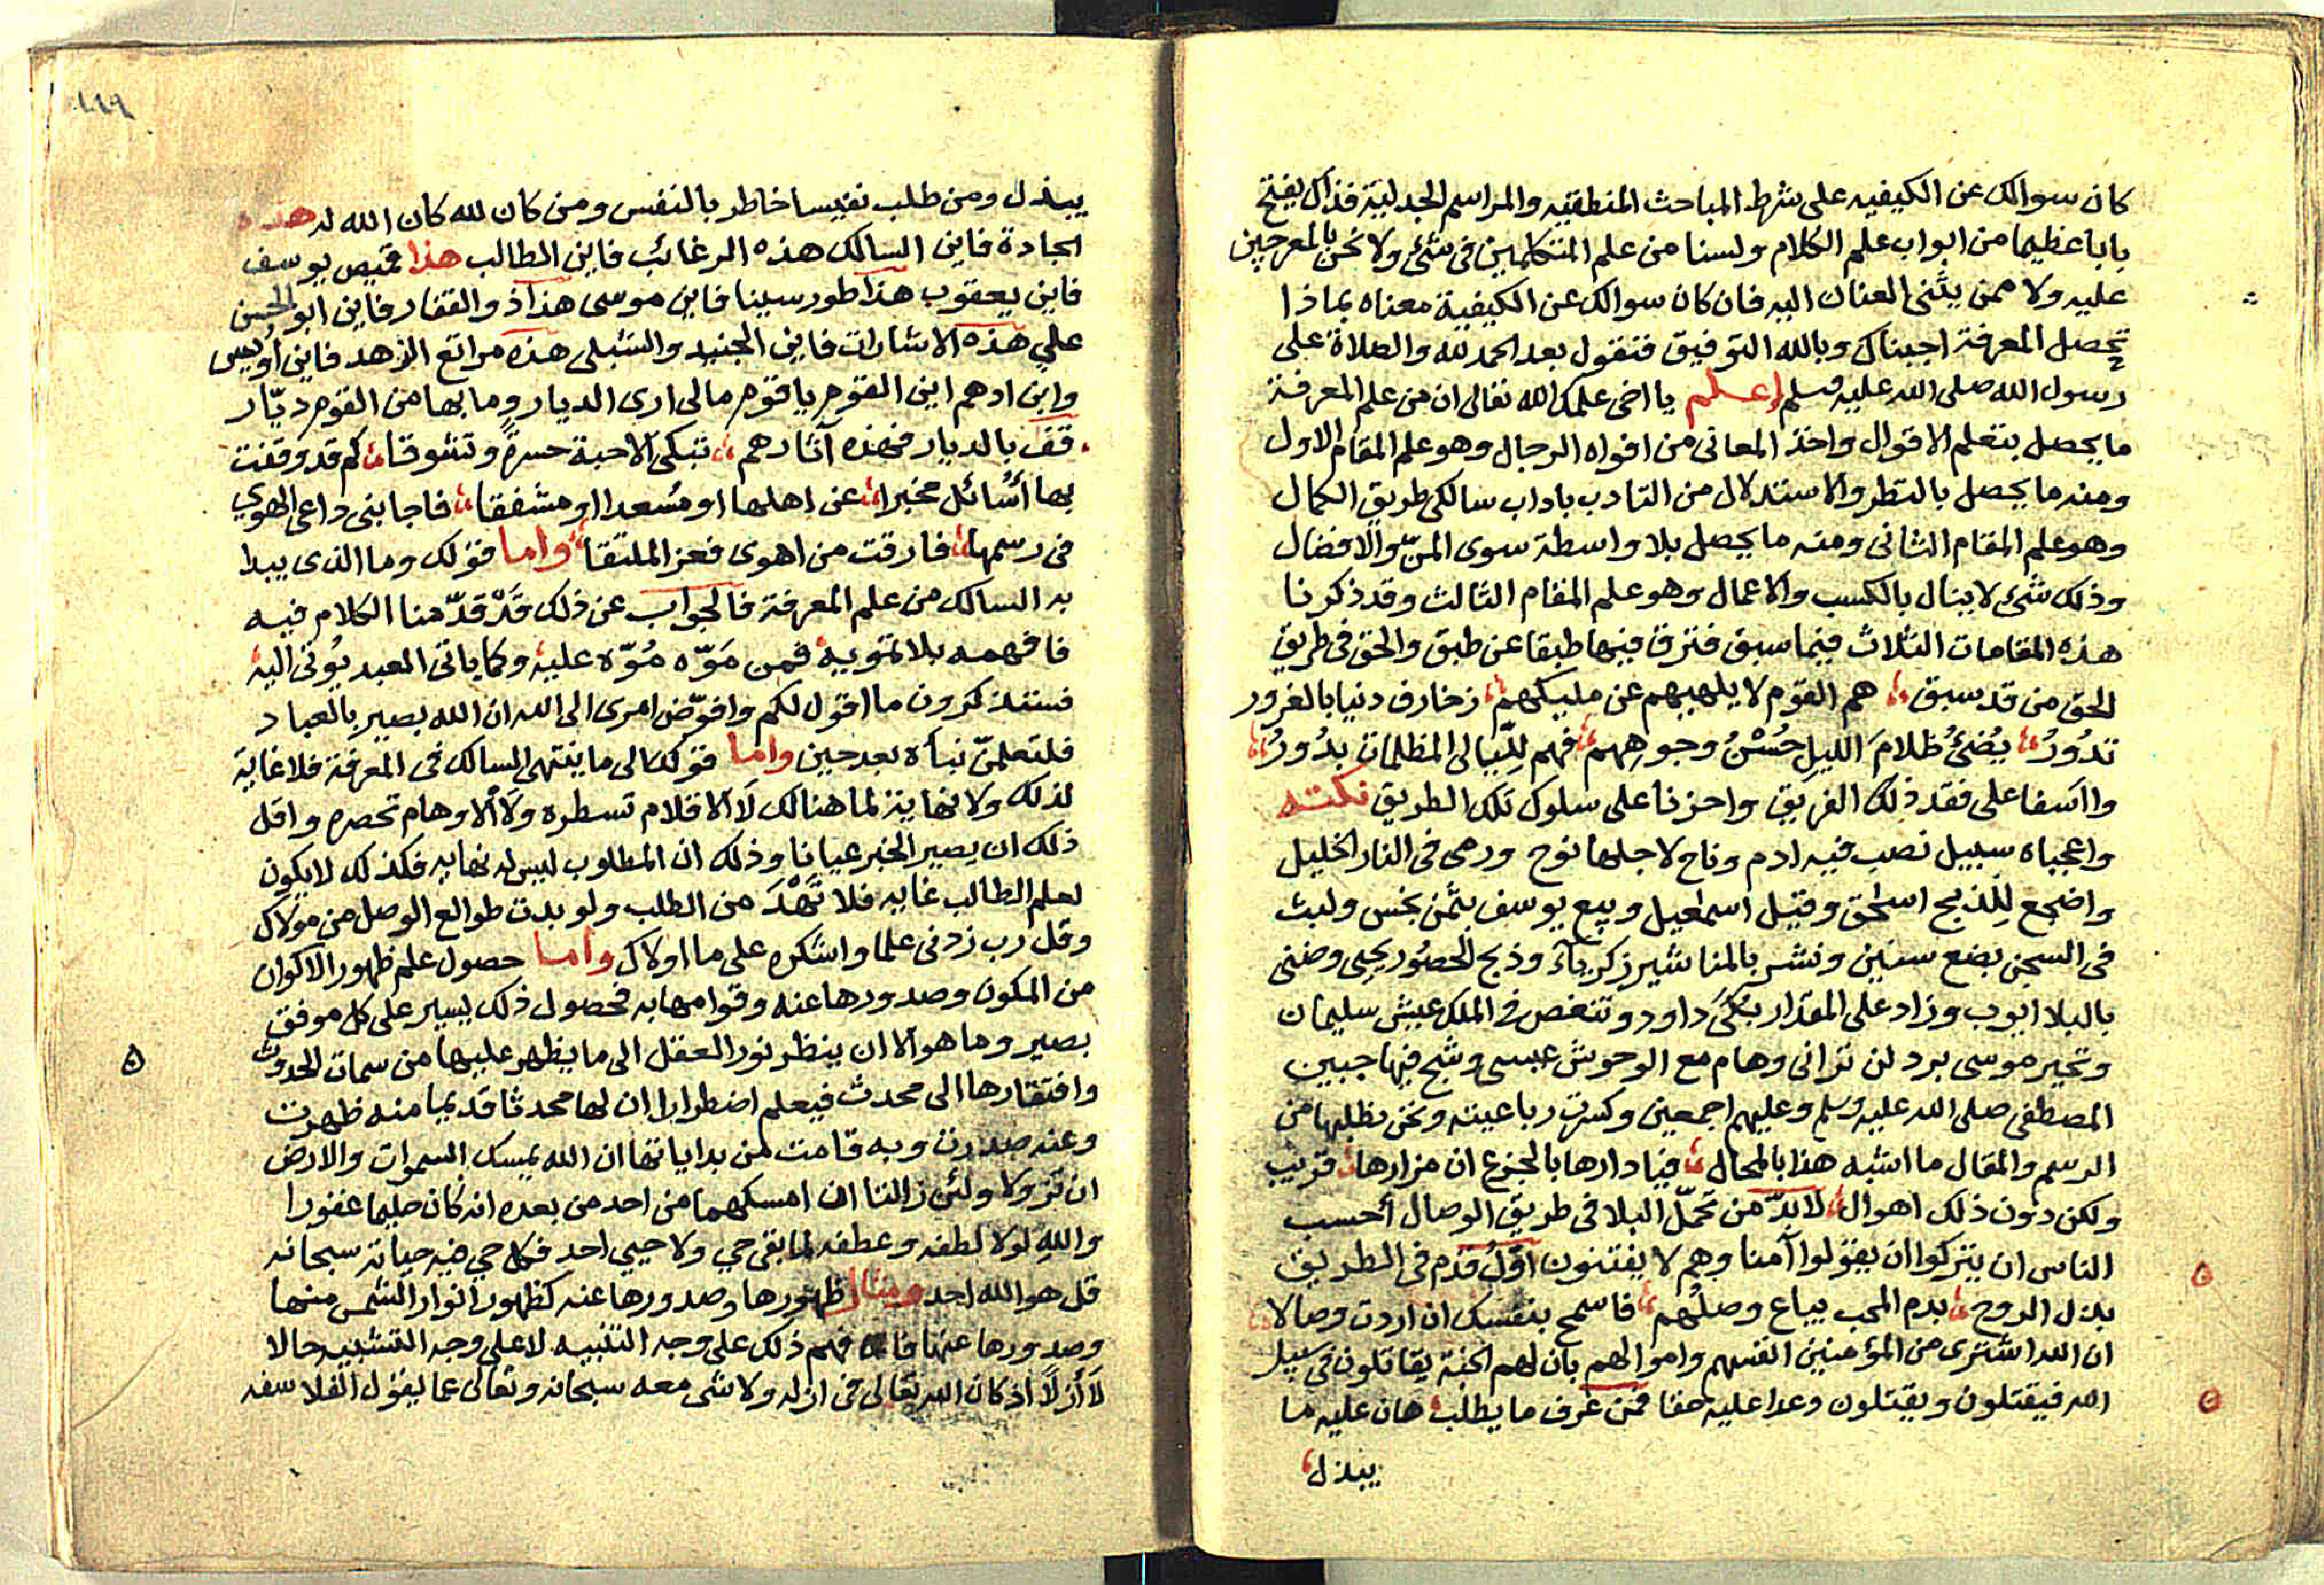 كان سوالك عن الكيفيه على شرط المباحث المنطقيه والمراسم الجدلية فذاك يفتح
بابا عظيما من ابواب علم الكلام ولسنا من علم المتكلمين فى شئ ولا نحن بالمعرجين
عليه ولا ممن يثنى العنان اليه فان كان سوالك عن الكيفية معناه بماذا
تحصل المعرفة اجبناك وبالله التوفيق فنقول بعد الحمد لله والصلاة على
رسول الله صلى الله عليه وسلم إعلم يا اخى علمك الله تعالى ان من علم المعرفة
ما يحصل بتعلم الاقوال واخذ المعانى من افواه الرجال وهو علم المقام الاول
ومنه ما يحصل بالنظر والاستدلال من التادب باداب سالكى طريق الكمال
وهو علم المقام الثانى ومنه ما يحصل بلا واسطة سوى المنّ والافضال
وذلك شئ لا ينال بالكسب والاعمال وهو علم المقام الثالث وقد ذكرنا
هذه المقامات الثلاث فيما سبق فترق فيها طبقا عن طبق والحق فى طريق
الحق من قد سبق هم القوم لا يلهيهم عن مليكهم زخارف دنيا بالغرور
تدُورُ يُضئُ ظلامَ الليلِ حُسْنُ وجوهِهم فهم لِلّيالى المظلمات بدُورُ
وااسفا على فقد ذلك الفريق واحزنا على سلوك تلك الطريق نكته
واعجباه سبيل نصب فيه ادم وناح لاجلها نوح ورمى فى النار الخليل
واضجع لِلذبح اسحق وقيل اسمعيل وبيع يوسف بثمن بخس ولبث
فى السجن بضع سنين ونشر بالمناشير زكرياء وذبح الحصُور يحيى وضنى
بالبلا ايوب وزاد على المقدار بكَى داود وتنغص فى الملك عيش سليمان
وتحير موسى برد لن ترانى وهام مع الوحوش عيسى وشج فيها جبين
المصطفى صلى الله عليه وسلم وعليهم اجمعين وكسرت رباعيته ونحن نطلبها من
الرسم والمقال ما اشبه هذا بالمحال فيا دارها بالجزع ان مزارها قريب
ولكن دون ذلك اهوال لا بدّ من تَحمّل البلا فى طريق الوصال أحسب
الناس ان يتركوا ان يقولوا آمنا وهم لا يفتنون اوّلُ قدم فى الطريق
بذل الروح بدم المحب يباع وصلُهم فاسمح بنفسك ان اردت وصالا
ان الله اشترى من المؤمنين انفسهم واموالهم بان لهم الجنة يقاتلون فى سبيل
الله فيقتلون ويقتلون وعدا عليه حقا فمن عرف ما يطلب هان عليه ما
يبذل
١١٩
يبذل ومن طلب نفيسا خاطر بالنفس ومن كان لله كان الله له هذه
الجادة فاين السالك هذه الرغائب فاين الطالب هذا قميص يوسف
فاين يعقوب هذا طور سينا فاين موسى هذا ذو الفقار فاين ابو الحسن
علي هذه الاشارات فاين الجنيد والشبلى هذه مراتع الزهد فاين أويس
وابن ادهم اين القوم يا قوم مالى ارى الديار وما بها من القوم ديّار
قف بالديار فهذه آثارهم تبكى الاحبة حسرةً وتشوقا كم قد وقفت
بها أسائل مخبرا عن اهلها او مُسعدا او مشفقا فاجابنى داعى الهوى
فى رسمها فارقت من اهوى فعز الملتقا واما قولك وما الذى يبدا
به السالك من علم المعرفة فالجواب عن ذلك قَدْ قدّمنا الكلام فيه
فافهمه بلا تمويه فمن مَوّه مُوّه عليه وكما ياتى العبد يُوتى اليه
فستذكرون ما اقول لكم وافوّض امرى الى الله ان الله بصير بالعباد
فلتعلمنّ نباه بعد حين واما قولك الى ما ينتهى السالك فى المعرفة فلا غاية
لذلك ولا نهاية لما هنالك لَا الاقلام تسطره ولَا الاوهام تحصره واقل
ذلك ان يصير الخبر عيانا وذلك ان المطلوب ليس له نهايه فكذلك لا يكون
لعلم الطالب غايه فلا تَهْدَ من الطلب ولو بدت طوالع الوصل من مولاك
وقل رب زدنى علما واشكره على ما اولاك واما حصول علم ظهور الاكوان
من المكون وصدورها عنه وقوامها به فحصول ذلك يسير على كل موفق
بصير وما هو الا ان ينظر نور العقل الى ما يظهر عليها من سمات الحدوث
وافتقارها الى محدث فيعلم اضطرارا ان لها محدثا قديما منه ظهرت
وعنه صدرت وبه قامت لمن بداياتها ان الله يمسك السموات والارض
ان تزولا ولئن زالتا ان امسكهما من احد من بعده انه كان حليما غفورا
والله لولا لطفه وعطفه لما بقى حي ولا حيي احد فكل حي فيه حياته سبحانه
قل هو الله احد ومثال ظهورها وصدورها عنه كظهور انوار الشمس منها
وصدورها عنها فافهم ذلك على وجه التنبيه لا على وجه التشبيه حالا
لَا أزلًا اذ كان الله تعالى فى ازله ولا شى معه سبحانه وتعالى عما يقول الفلاسفه